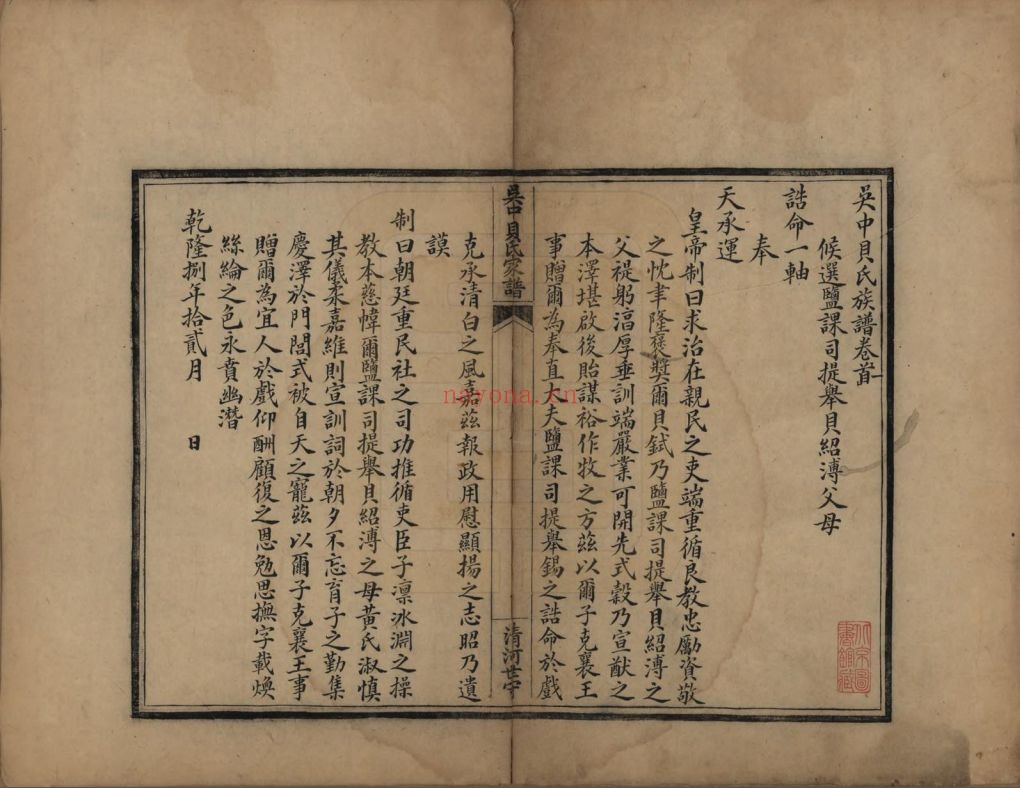 吳中貝氏族譜卷首
候選鹽課司提舉貝紹溥父母
誥命一軸
奉
天承運
皇帝制曰求治在親民之吏端重循良教忠勵資敬
之忱聿隆褒獎爾貝錻乃鹽課司提舉貝紹溥之
父禔躬湻厚垂訓端嚴業可開先式穀乃宣猷之
本澤堪啟後貽謀裕作牧之方茲以爾子克襄王
事贈爾為奉直大夫鹽課司提舉錫之誥命於戲
吳中貝氏家譜
清河世宁
克承清白之風嘉茲報政用慰顯揚之志昭乃遺
謨
制曰朝廷重民社之司功推循吏臣子凜冰淵之操
教本慈幃爾鹽課司提舉貝紹溥之母黃氏淑慎
其儀柔嘉維則宣訓詞於朝夕不忘育子之勤集
慶澤於門閭式被自天之寵茲以爾子克襄王事
贈爾為宜人於戲仰酬顧復之恩勉思撫字載煥
絲綸之色永賁幽潛
乾隆捌年拾貳月　日
北京圖書館藏
nayona.cn